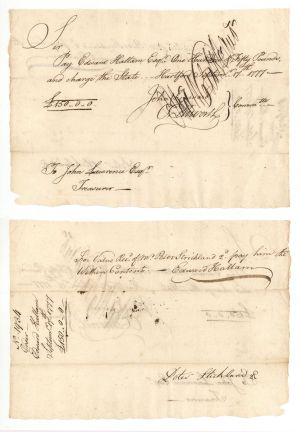 Sir
Pay Edward Hallam Esqr. One Hundred & Fifty Pounds
and charge the State. Hartford 17th 1777
£150..0..0
John
To John Lawrence Esqr.
Treasurer
For Value Recd of Mr. Peter Strickland pay him the
Within Contents Edward Hallam
Order
Edward Hallam
1777
£150..0..0
Peter Strickland